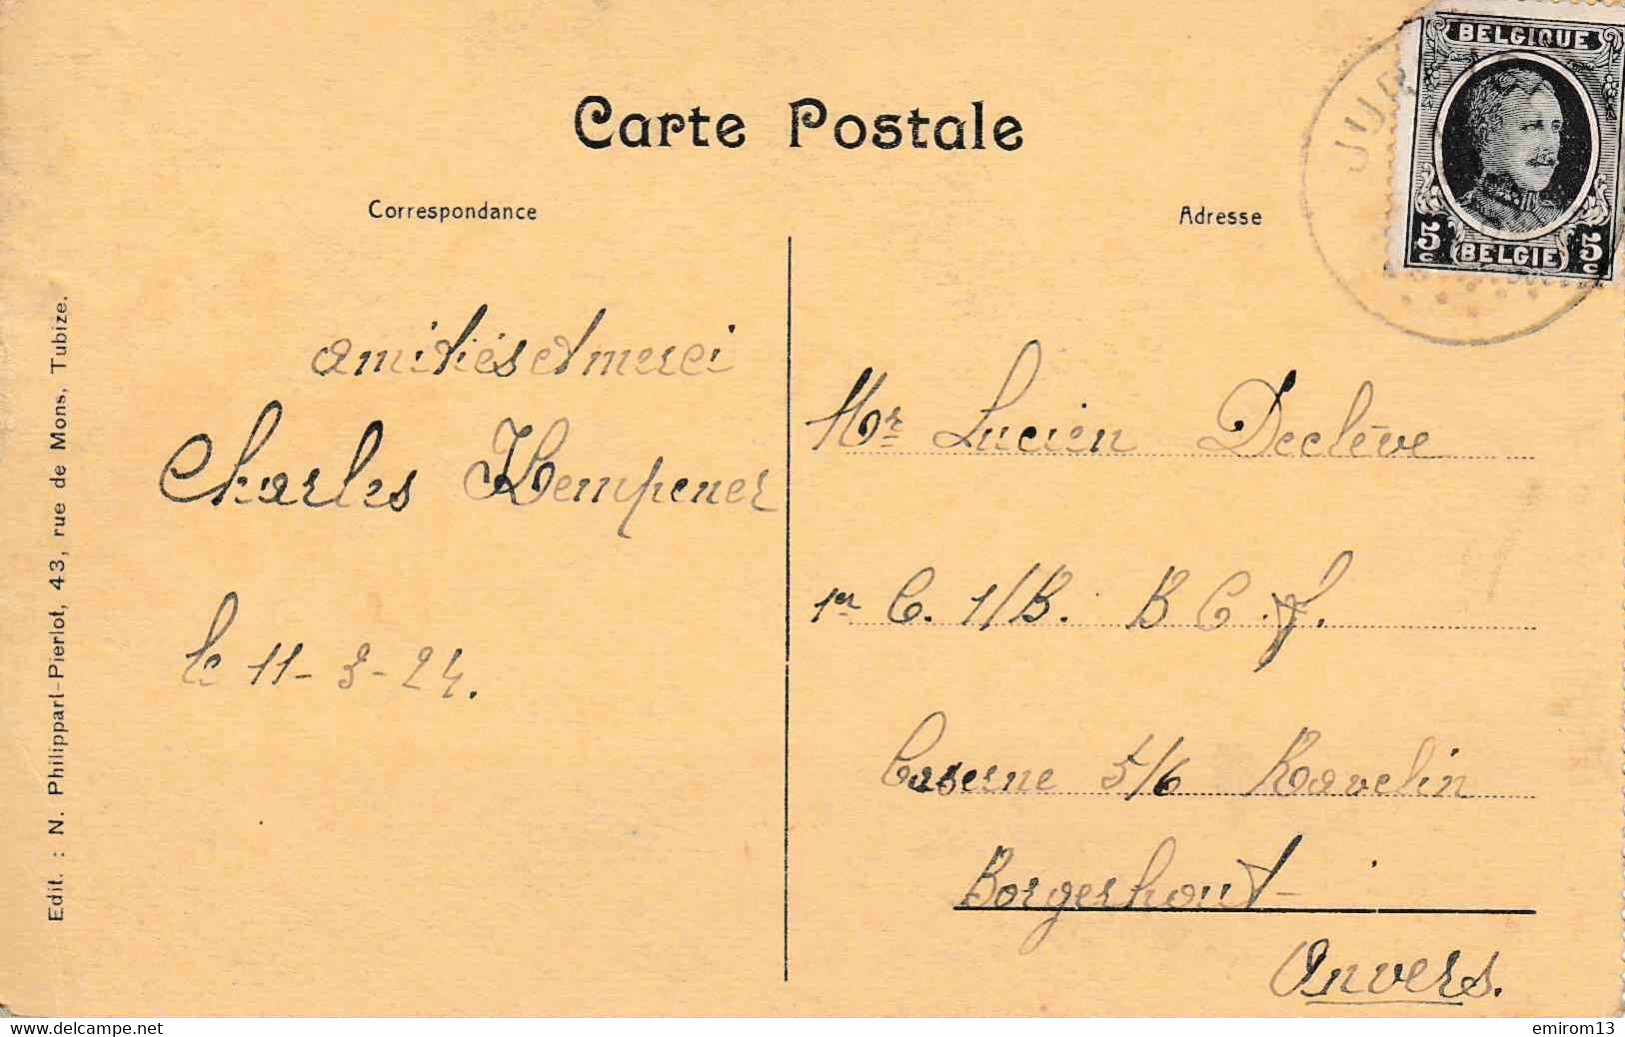 Carte Postale
Correspondance
Adresse
BELGIQUE
5 c BELGIE 5 c
amitiés et merci
Charles Kempener
le 11-3-24.
Mr Lucien Declève
1er C. 1/B. B C. f.
Caserne 5/6 Ravelin
Borgerhout-
Anvers.
Edit. : N. Philippart-Pierlot, 43, rue de Mons, Tubize.
www.delcampe.net
emirom13